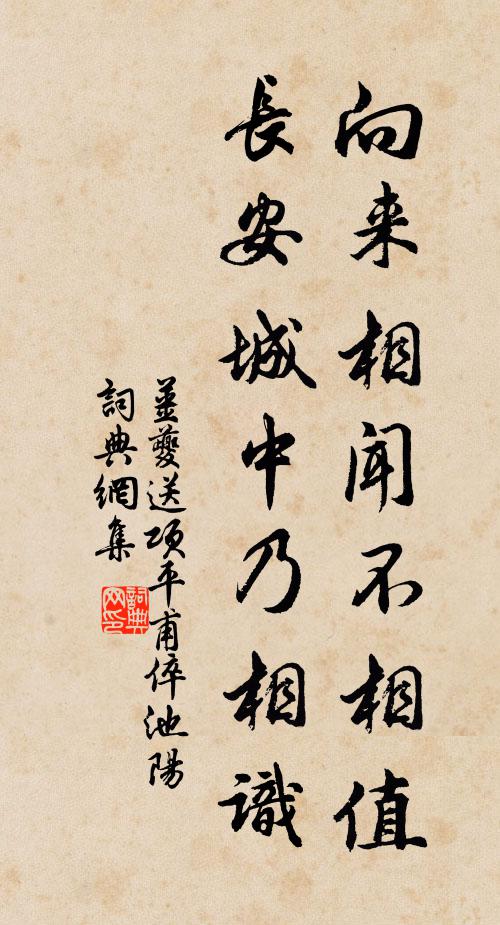 向来相闻不相值
長安城中乃相識
姜夔送項平甫倅池陽
詞典網集
詞典网印